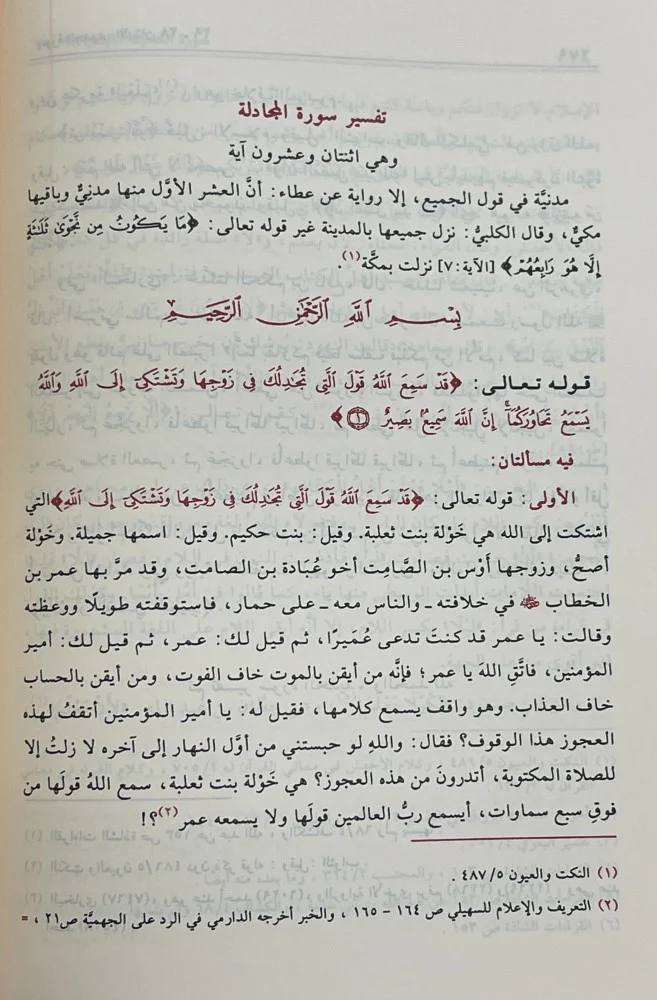 تفسير سورة المجادلة
وهي اثنتان وعشرون آية
مدنيَّة في قول الجميع، إلا رواية عن عطاء: أنَّ العشر الأوَّل منها مدنيٌّ وباقيها
مكيٌّ، وقال الكلبيُّ: نزل جميعها بالمدينة غير قوله تعالى: ﴿مَا يَكُونُ مِن نَّجْوَىٰ ثَلَٰثَةٍ
إِلَّا هُوَ رَابِعُهُمْ﴾ [الآية:٧] نزلت بمكَّة(١).
بِسْمِ ٱللَّهِ ٱلرَّحْمَٰنِ ٱلرَّحِيمِ
قوله تعالى: ﴿قَدْ سَمِعَ ٱللَّهُ قَوْلَ ٱلَّتِى تُجَٰدِلُكَ فِى زَوْجِهَا وَتَشْتَكِىٓ إِلَى ٱللَّهِ وَٱللَّهُ
يَسْمَعُ تَحَاوُرَكُمَآ ۚ إِنَّ ٱللَّهَ سَمِيعٌۢ بَصِيرٌ ۝١﴾
فيه مسألتان:
الأولى: قوله تعالى: ﴿قَدْ سَمِعَ ٱللَّهُ قَوْلَ ٱلَّتِى تُجَٰدِلُكَ فِى زَوْجِهَا وَتَشْتَكِىٓ إِلَى ٱللَّهِ﴾التي
اشتكت إلى الله هي خَوْلة بنت ثعلبة. وقيل: بنت حكيم. وقيل: اسمها جميلة. وخَوْلة
أصحُّ، وزوجها أوْس بن الصَّامِت أخو عُبَادة بن الصامت، وقد مرَّ بها عمر بن
الخطاب ﷺ في خلافته ـ والناس معه ـ على حمار، فاستوقفته طويلًا ووعظته
وقالت: يا عمر قد كنتَ تدعى عُمَيرًا، ثم قيل لك: عمر، ثم قيل لك: أمير
المؤمنين، فاتَّقِ اللهَ يا عمر؛ فإنَّه من أيقن بالموت خاف الفوت، ومن أيقن بالحساب
خاف العذاب. وهو واقف يسمع كلامها، فقيل له: يا أمير المؤمنين أتقفُ لهذه
العجوز هذا الوقوف؟ فقال: والله لو حبستني من أوَّل النهار إلى آخره لا زلتُ إلا
للصلاة المكتوبة، أتدرونَ من هذه العجوز؟ هي خَوْلة بنت ثعلبة، سمع اللهُ قولَها من
فوقِ سبع سماوات، أيسمع ربُّ العالمين قولَها ولا يسمعه عمر(٢)؟!
(١) النكت والعيون ٤٨٧/٥ .
(٢) التعريف والإعلام للسهيلي ص ١٦٤ - ١٦٥ ، والخبر أخرجه الدارمي في الرد على الجهميَّة ص٢١ ، =